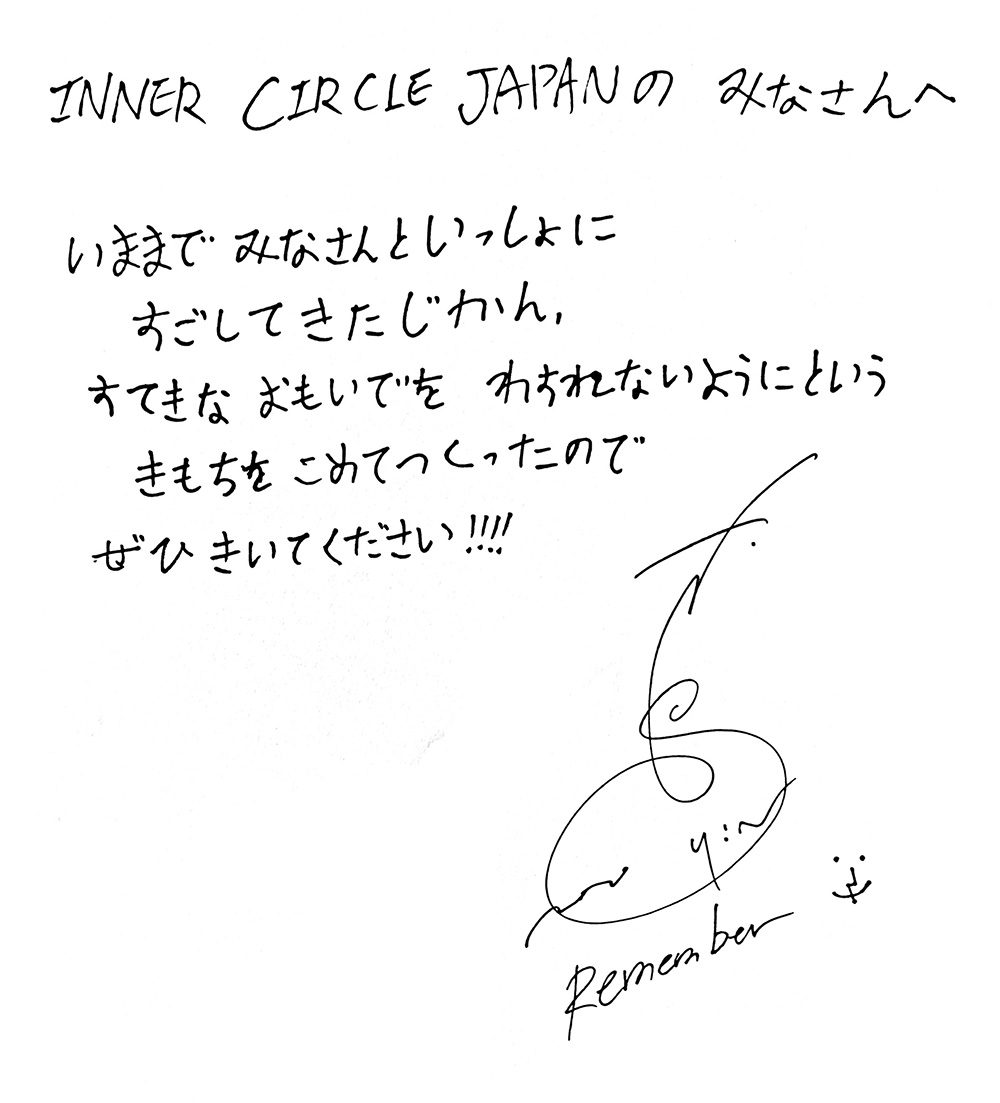 INNER CIRCLE JAPANの みなさんへ
いままで みなさんといっしょに
すごしてきたじかん,
すてきな おもいでを わすれないようにという
きもちを こめてつくったので
ぜひ きいてください!!!!
Remember